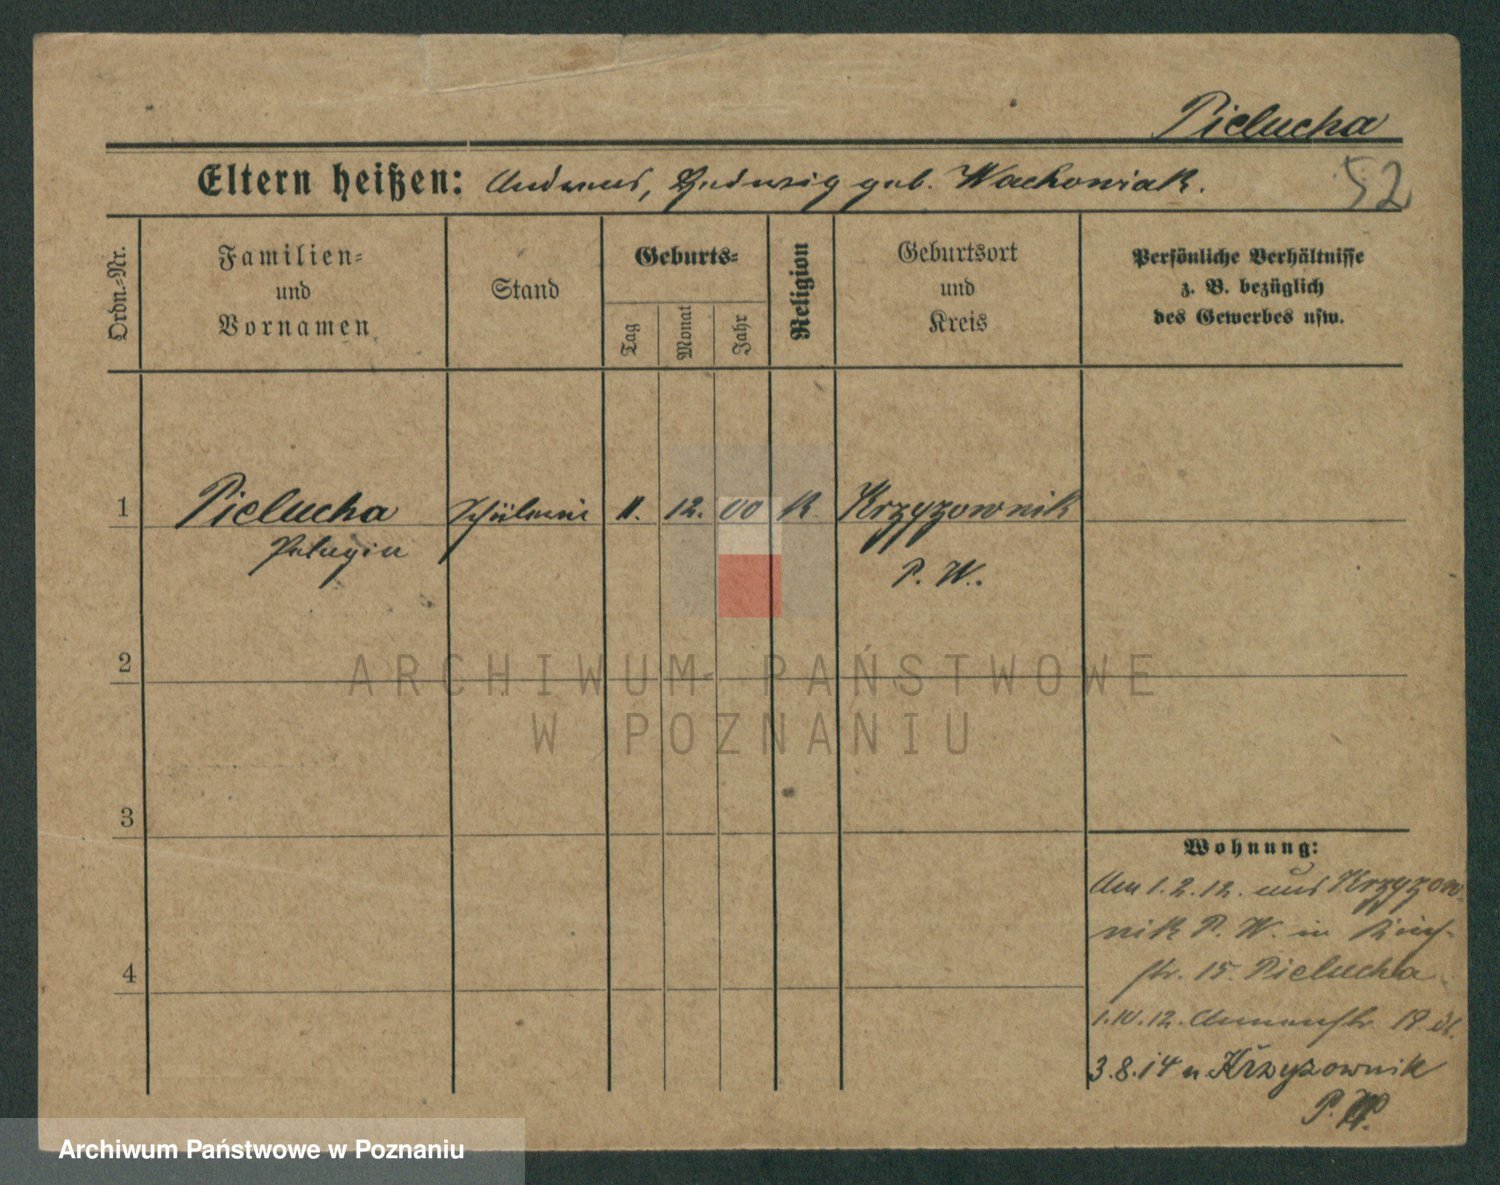 Pielucha
Eltern heißen: Andreas, Hedwig geb. Wachowiak.
52
Ordn.-Nr.
Familien-
und
Vornamen
Stand
Geburts-
Tag
Monat
Jahr
Religion
Geburtsort
und
Kreis
Persönliche Verhältnisse
z. B. bezüglich
des Gewerbes usw.
1 Pielucha Schülerin 11. 12. 00 K. Krzyzownik
Pelagia P. W.
2
ARCHIWUM PAŃSTWOWE
W POZNANIU
3
Wohnung:
Am 1.2.12. aus Krzyzow-
nik P. W. in
str. 15. Pielucha
4
1.10.12. 18
3.8.14 n Krzyzownik
P. W.
Archiwum Państwowe w Poznaniu